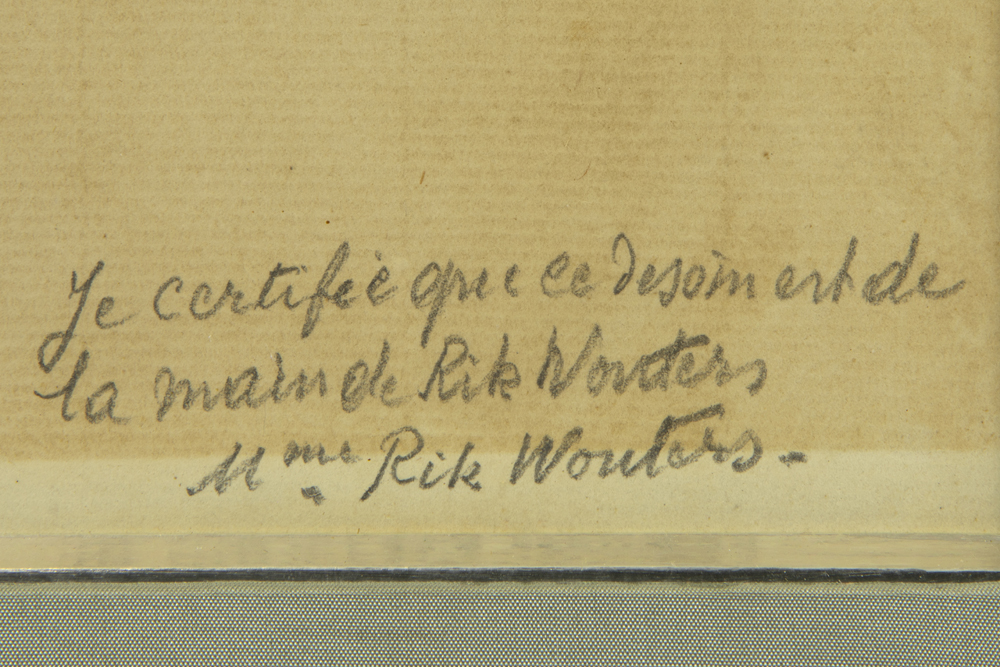 Je certifie que ce dessin est de
la main de Rik Wouters
Mme Rik Wouters.-